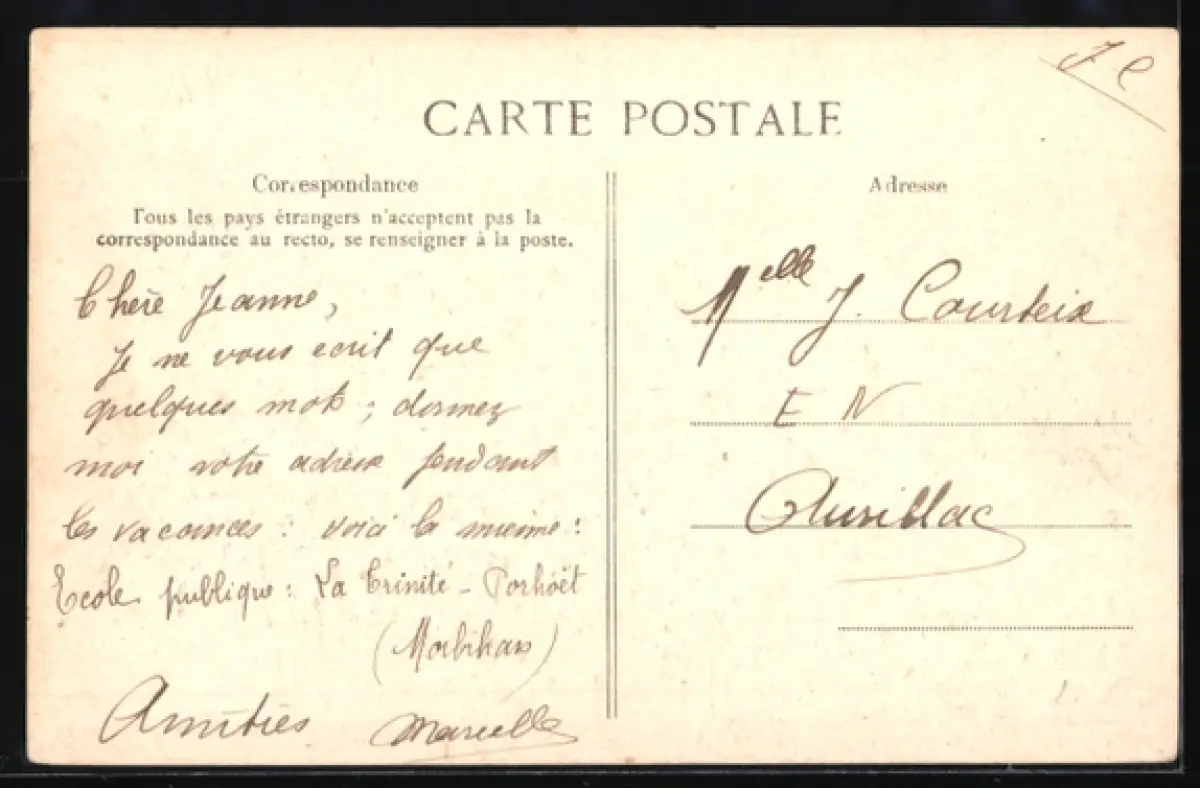 J C
CARTE POSTALE
Correspondance
Tous les pays étrangers n'acceptent pas la
correspondance au recto, se renseigner à la poste.
Chère Jeanne,
Je ne vous ecrit que
quelques mots ; donnez
moi votre adresse pendant
les vacances : voici la mienne :
Ecole publique : La Trinité - Porhoët
(Morbihan)
Amitiés Marcelle
Adresse
Melle J. Courteix
E N
Aurillac